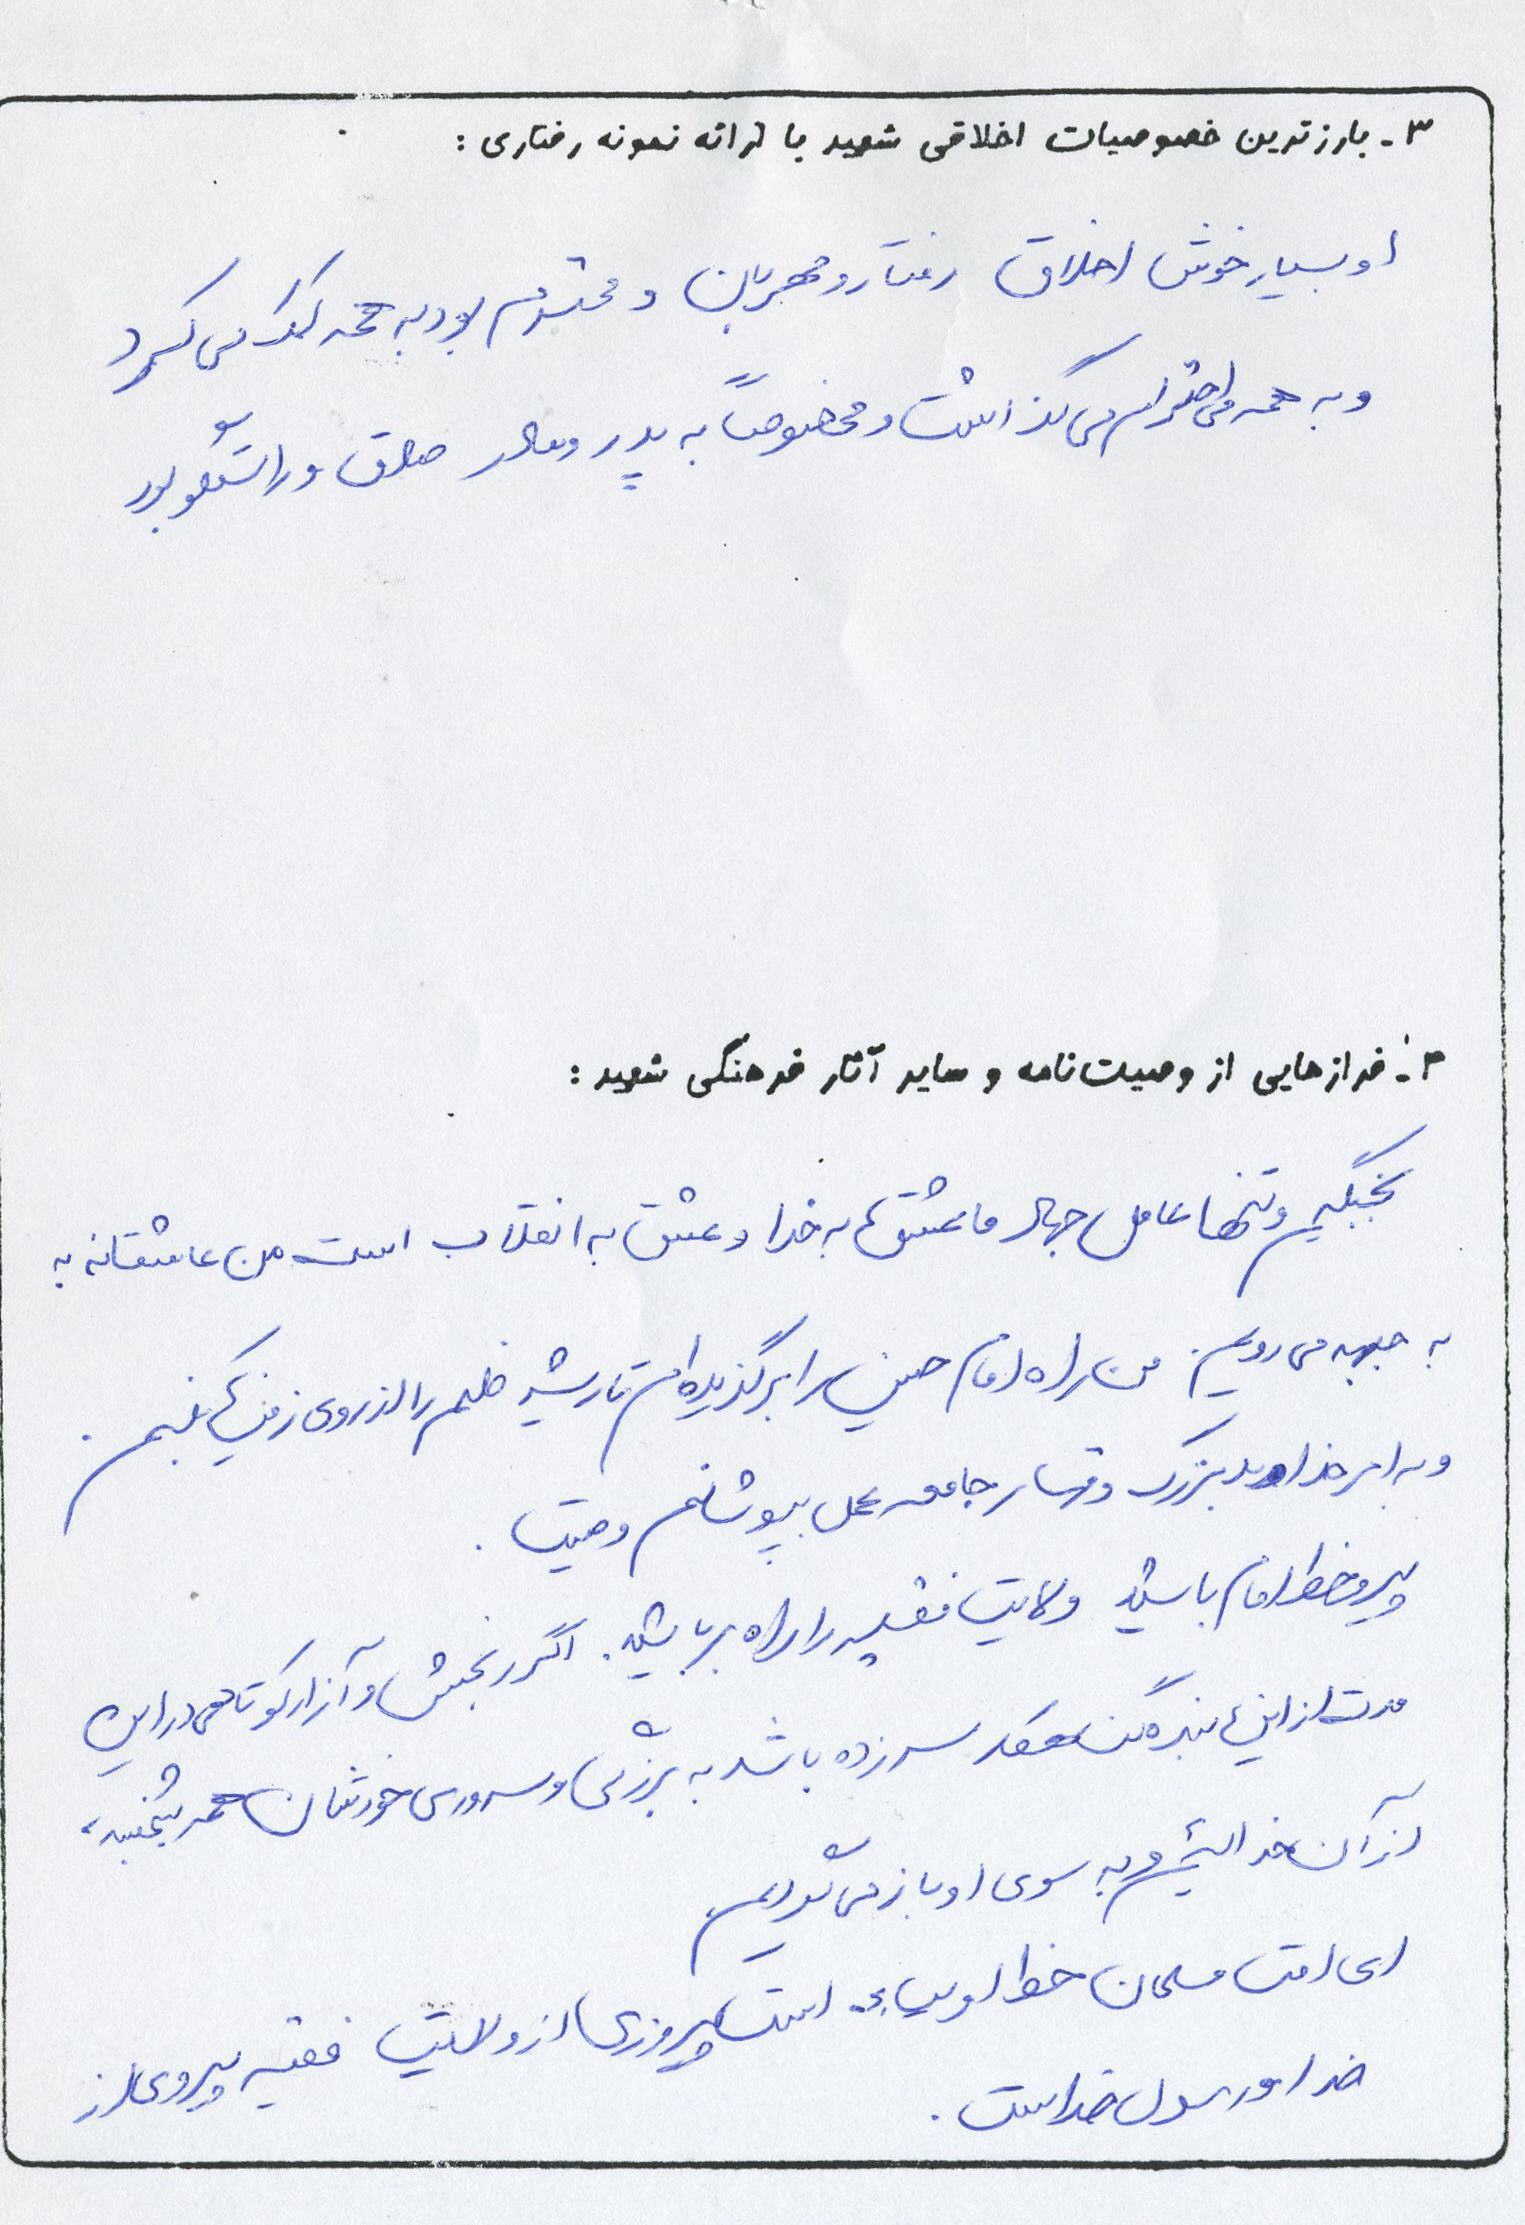 ۳ - بارزترین خصوصیات اخلاقی شهید با ارائه نمونه رفتاری :
او بسیار خوش اخلاق رفتار و مهربان و محترم بود به همه کمک می کرد
و به همه احترام می گذاشت و مخصوصاً به پدر و مادر صادق و راستگو بود
۴ - فرازهایی از وصیت‌نامه و سایر آثار فرهنگی شهید :
بجنگیم و تنها عامل جهاد ما عشق به خدا و عشق به انقلاب است من عاشقانه به
به جبهه می رویم . من راه امام حسین را برگزیده ام تا ریشه ظلم را از روی زمین بکنیم .
و به امر خداوند بزرگ و جامعه عمل بپوشانم وصیت .
پیرو خط امام باشید ولایت فقیه را راه بر باشید . اگر رنجش و آزار کوتاهی در این
مدت از این بنده گنهکار سرزده باشد به بزرگی و سروری خودشان همه ببخشید ،
از آن خدائیم و به سوی او باز می گردیم
ای امت مسلمان خط است پیروزی از ولایت فقیه پیروی از
خدا و رسول خداست .